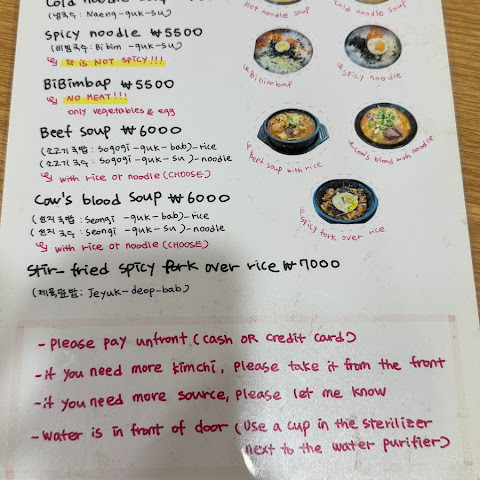 Cold noodle soup
(냉국수: Naeng-guk-su)
Spicy noodle ₩5500
(비빔국수: Bibim-guk-su)
It is NOT SPICY!!!
BiBimbap ₩5500
NO MEAT!!!
only vegetables & egg
Beef soup ₩6000
(소고기국밥: Sogogi-guk-bab)-rice
(소고기국수: Sogogi-guk-su)-noodle
with rice or noodle (CHOOSE)
Cow's blood soup ₩6000
(선지국밥: Seongi-guk-bab)-rice
(선지국수: Seongi-guk-su)-noodle
with rice or noodle (CHOOSE)
Stir-fried spicy pork over rice ₩7000
(제육덮밥: Jeyuk-deop-bab)
Hot noodle soup
Cold noodle soup
Bibimbap
Spicy noodle
Beef soup with rice
Cow's blood with noodle
Spicy pork over rice
- Please pay unfront (cash OR credit card)
- if you need more kimchi, please take it from the front
- if you need more source, please let me know
- Water is in front of door (Use a cup in the sterilizer
next to the water purifier)